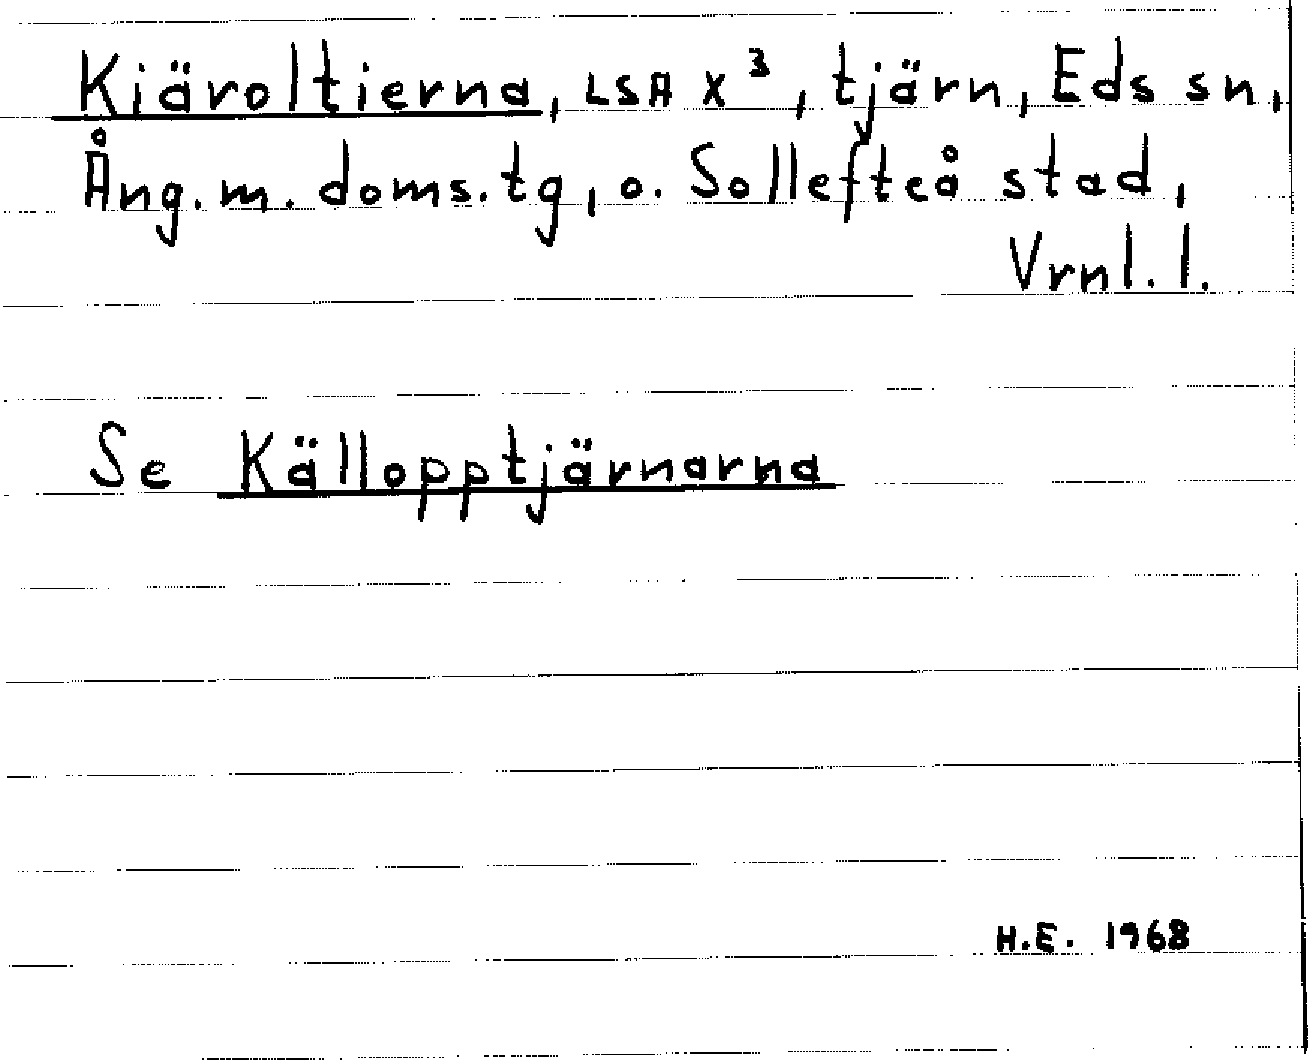 Kiäroltierna, LSA X³, tjärn, Eds sn,
Ång. m. doms. tg, o. Sollefteå stad,
Vrnl. l.
Se Källopptjärnarna
H.E. 1968